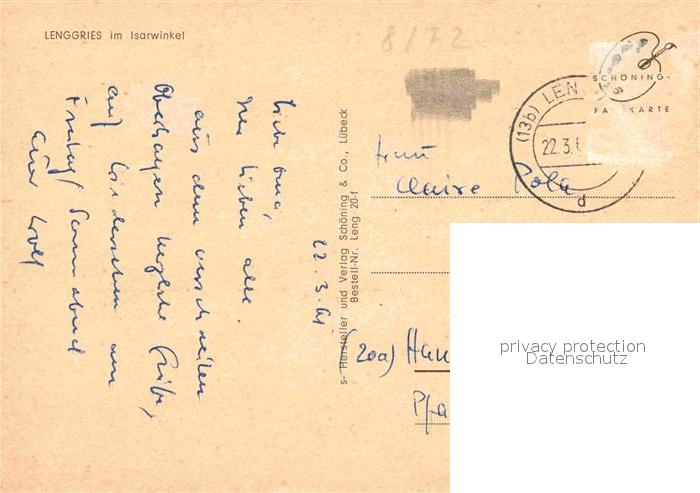 LENGGRIES im Isarwinkel
8/72
22.3.61
Liebe Oma,
Ihr lieben alle.
aus dem verschneiten
Oberbayern herzliche Grüße,
auf Wiedersehen am
Freitag/Sonnabend
Euer Wolf
Hersteller und Verlag Schöning & Co., Lübeck
Bestell-Nr. Leng 20-f
SCHÖNING-
FARBKARTE
(13b) LEN
22.3.6
d
Frau
Claire
(20a) Han
Pfa
privacy protection
Datenschutz